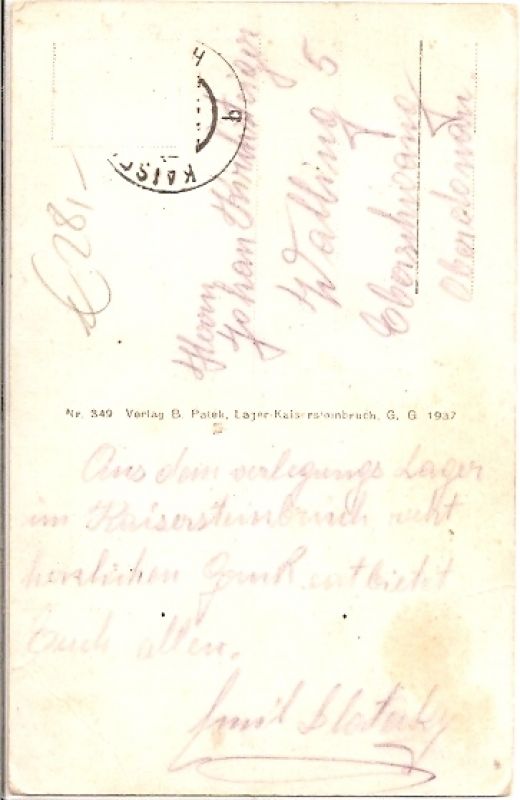 KAISE
€ 28,-
Herrn
Johan
Walling 5
Eberschwang
Oberdonau.
Nr. 349 Verlag B. Patek, Lager-Kaisersteinbruch, G. G. 1937
Aus dem verlegungs Lager
im Kaisersteinbruch recht
herzlichen Gruß entbietet
Euch allen.
Emil